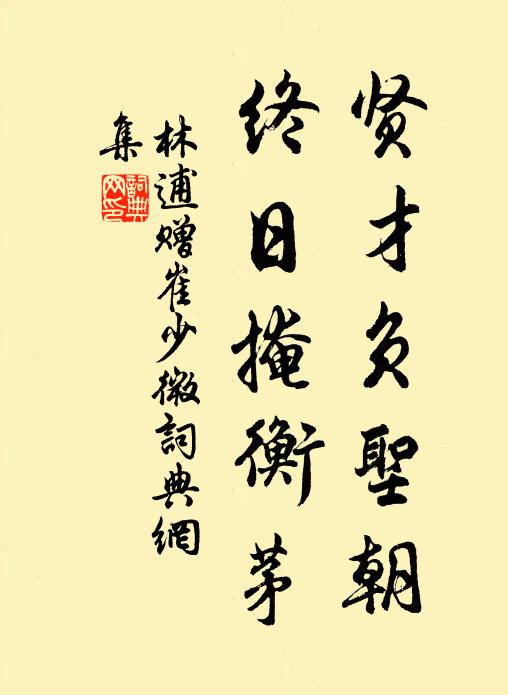 贤才负聖朝
终日掩衡茅
林逋赠崔少微詞典網
集
詞典
网印